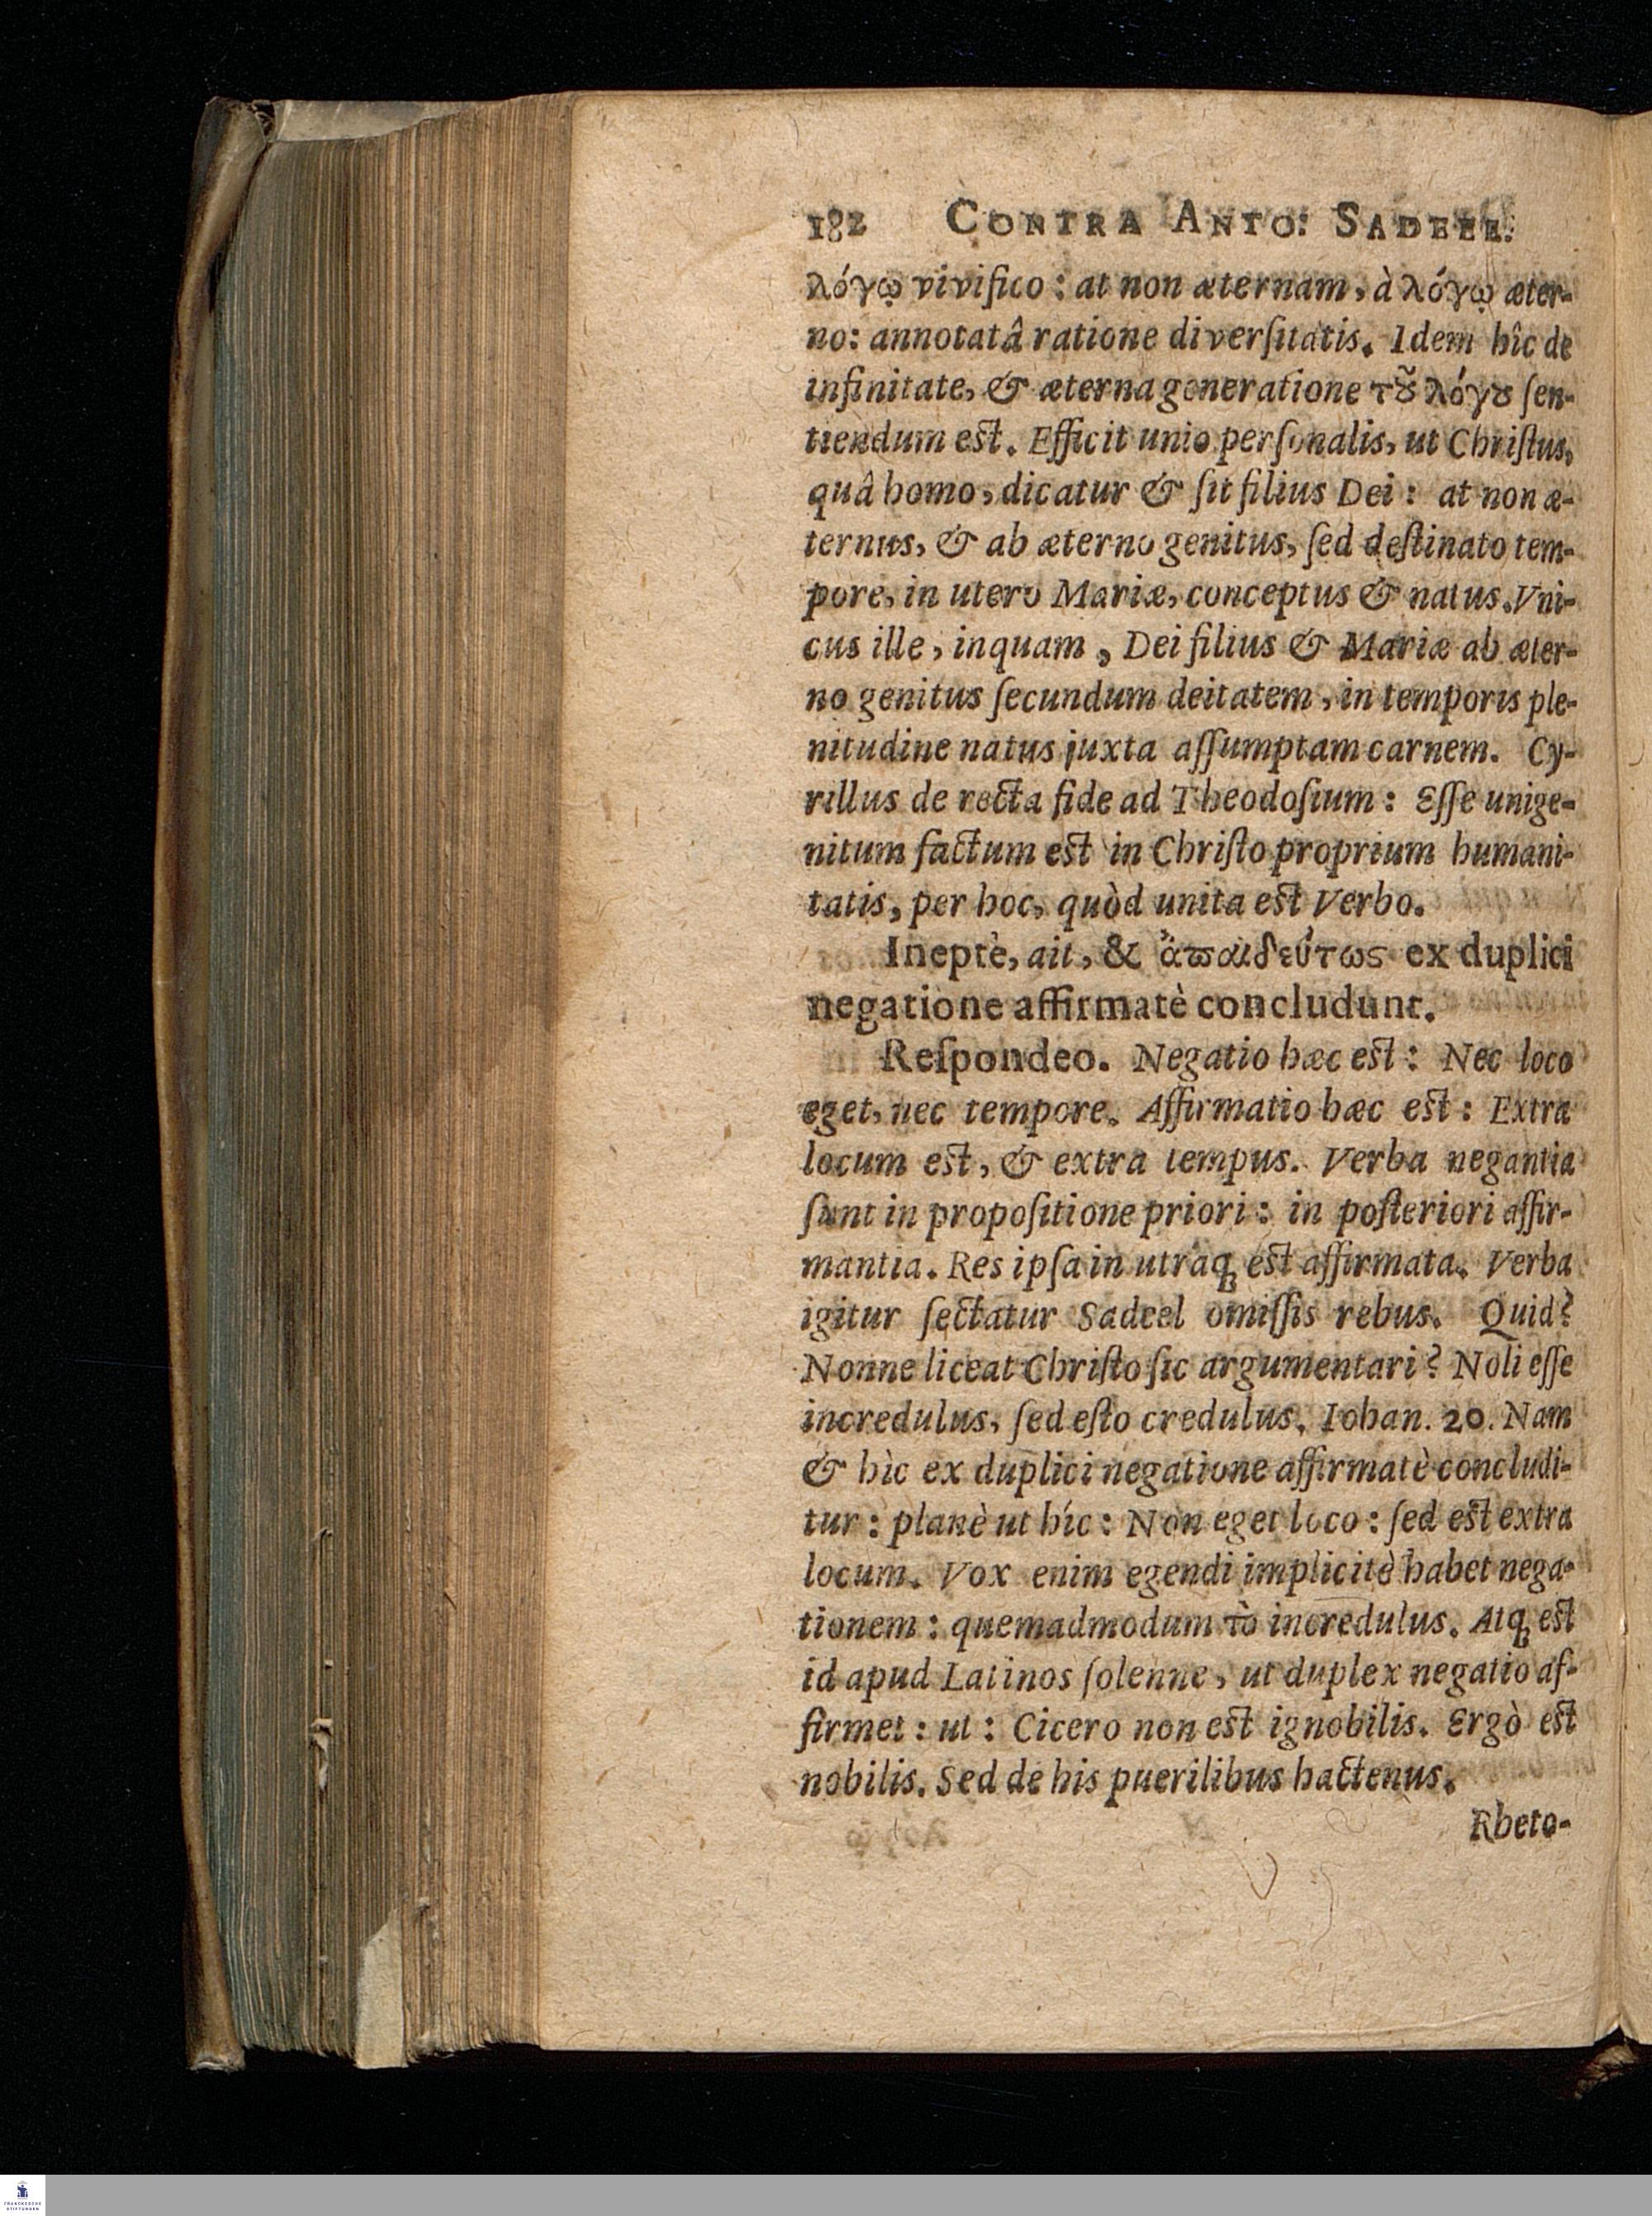 182 CONTRA ANTO: SADEEL.
λόγῳ vivifico: at non æternam, à λόγῳ æter-
no: annotatâ ratione diverſitatis. Idem hîc de
infinitate, & æterna generatione τȣ͂ λόγȣ ſen-
tiendum est. Efficit unio perſonalis, ut Chriſtus,
quâ homo, dicatur & ſit filius Dei: at non æ-
ternus, & ab æterno genitus, ſed deſtinato tem-
pore, in utero Mariæ, conceptus & natus. Vni-
cus ille, inquam, Dei filius & Mariæ ab æter-
no genitus ſecundum deitatem, in temporis ple-
nitudine natus juxta aſſumptam carnem. Cy-
rillus de recta fide ad Theodoſium: Eſſe unige-
nitum factum est in Chriſto proprium humani-
tatis, per hoc, quòd unita est Verbo.
Ineptè, ait, & ἀπαιδεύτως ex duplici
negatione affirmatè concludunt.
Reſpondeo. Negatio hæc est: Nec loco
eget, nec tempore. Affirmatio hæc est: Extra
locum est, & extra tempus. Verba negantia
ſunt in propoſitione priori: in poſteriori affir-
mantia. Res ipſa in utraq; est affirmata. Verba
igitur ſectatur Sadeel omiſſis rebus. Quid?
Nonne liceat Chriſto ſic argumentari? Noli eſſe
incredulus, ſed eſto credulus. Iohan. 20. Nam
& hìc ex duplici negatione affirmatè concludi-
tur: planè ut híc: Non eget loco: ſed est extra
locum. Vox enim egendi implicitè habet nega-
tionem: quemadmodum τὸ incredulus. Atq; est
id apud Latinos ſolenne, ut duplex negatio af-
firmet: ut: Cicero non est ignobilis. Ergò est
nobilis. Sed de his puerilibus hactenus.
Rheto-
FRANCKESCHE
STIFTUNGEN